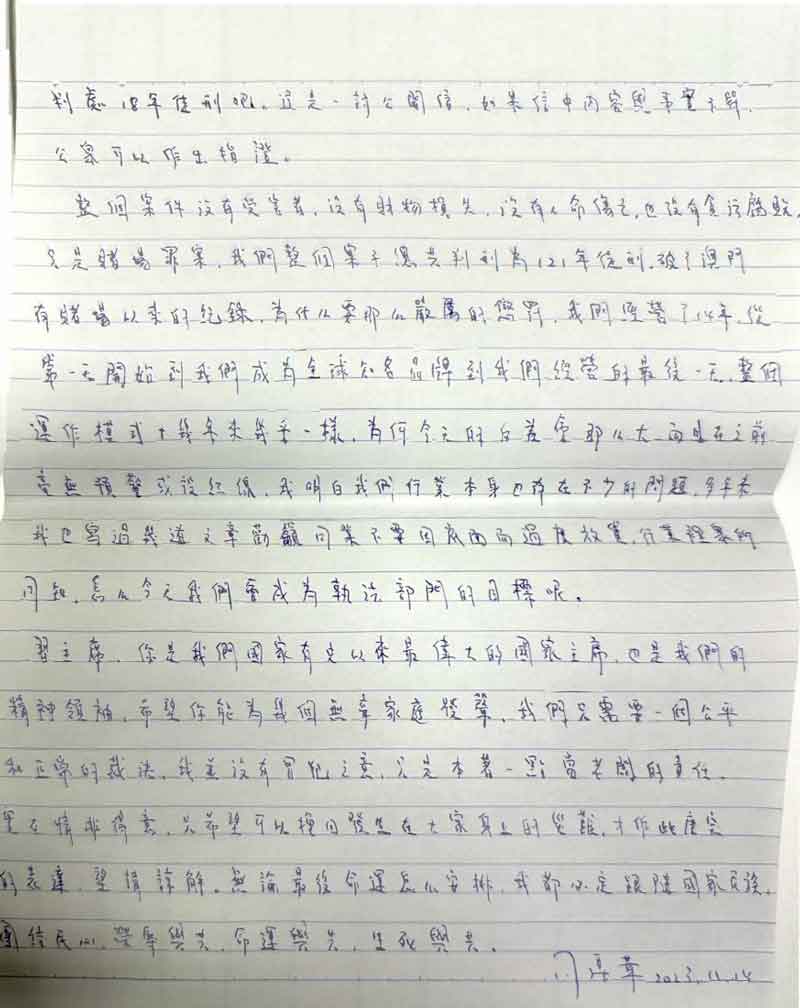 判處18年徒刑呢。這是一封公開信，如果信中內容與事實不符，
公眾可以作出指證。
整個案件沒有受害者，沒有財物損失，沒有人命傷亡，也沒有貪污腐敗，
只是賭場罪案，我們整個案子總共判刑為121年徒刑，破了澳門
有賭場以來的紀錄，為什么要那么嚴厲的懲罰，我們經營了14年，從
第一天開始到我們成為全球知名品牌到我們經營的最後一天，整個
運作模式十幾年來幾乎一樣，為何今天的落差會那么大，而且在之前
毫無預警或設紅線，我明白我們行業本身也存在不少的問題，多年來
我也寫過幾道文章勸籲同業不要因底面而過度放寬，行業裡眾所
周知，怎么今天我們會成為執法部門的目標呢。
習主席，你是我們國家有史以來最偉大的國家主席，也是我們的
精神領袖，希望你能為幾個無辜家庭發聲，我們只需要一個公平
和正常的裁決，我並沒有冒犯之意，只是本著一點當老闆的責任，
實在情非得意，只希望可以挽回發生在大家身上的災難，才作此
的表達，望請諒解。無論最後命運怎么安排，我都必定跟隨國家民族，
團結民心，榮辱與共，命運與共，生死與共。
周焯華 2023.11.14